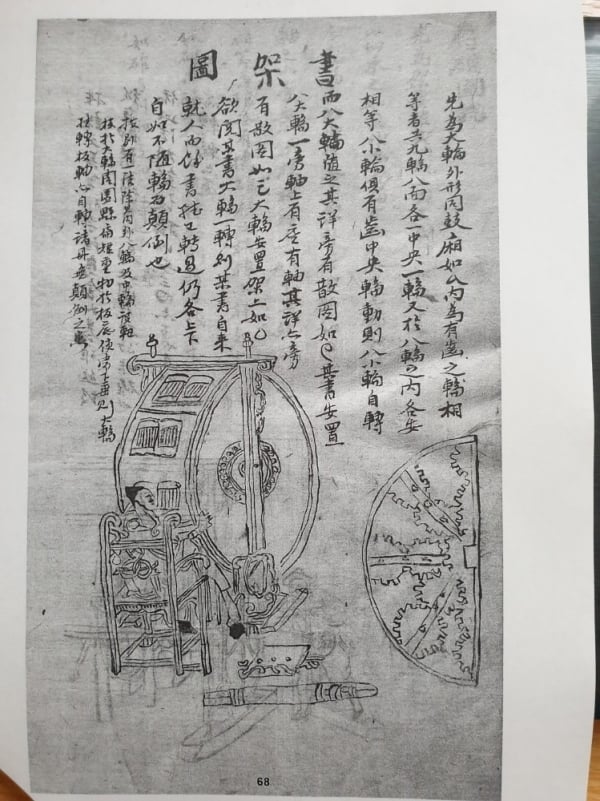 書架圖
先為大輪外形同鼓廂如內為有齒之輪相
等者共九輪八面各一中央一輪又於八輪之內各安
相等八小輪俱有齒中央輪動則八小輪自轉
而八大輪隨之其詳旁有散圖如其書安置
八大輪一旁軸上有有軸其詳亦旁
有散圖如大輪安置架上如
欲閱某書大輪一轉則某書自來
就人而餘書轉過仍各上下
自如不隨輪為顛倒也
有法除內外八輪及中輪設軸
於大輪周圍懸重物於板底使常下垂則大輪
轉板動自諸冊無顛倒之患
68